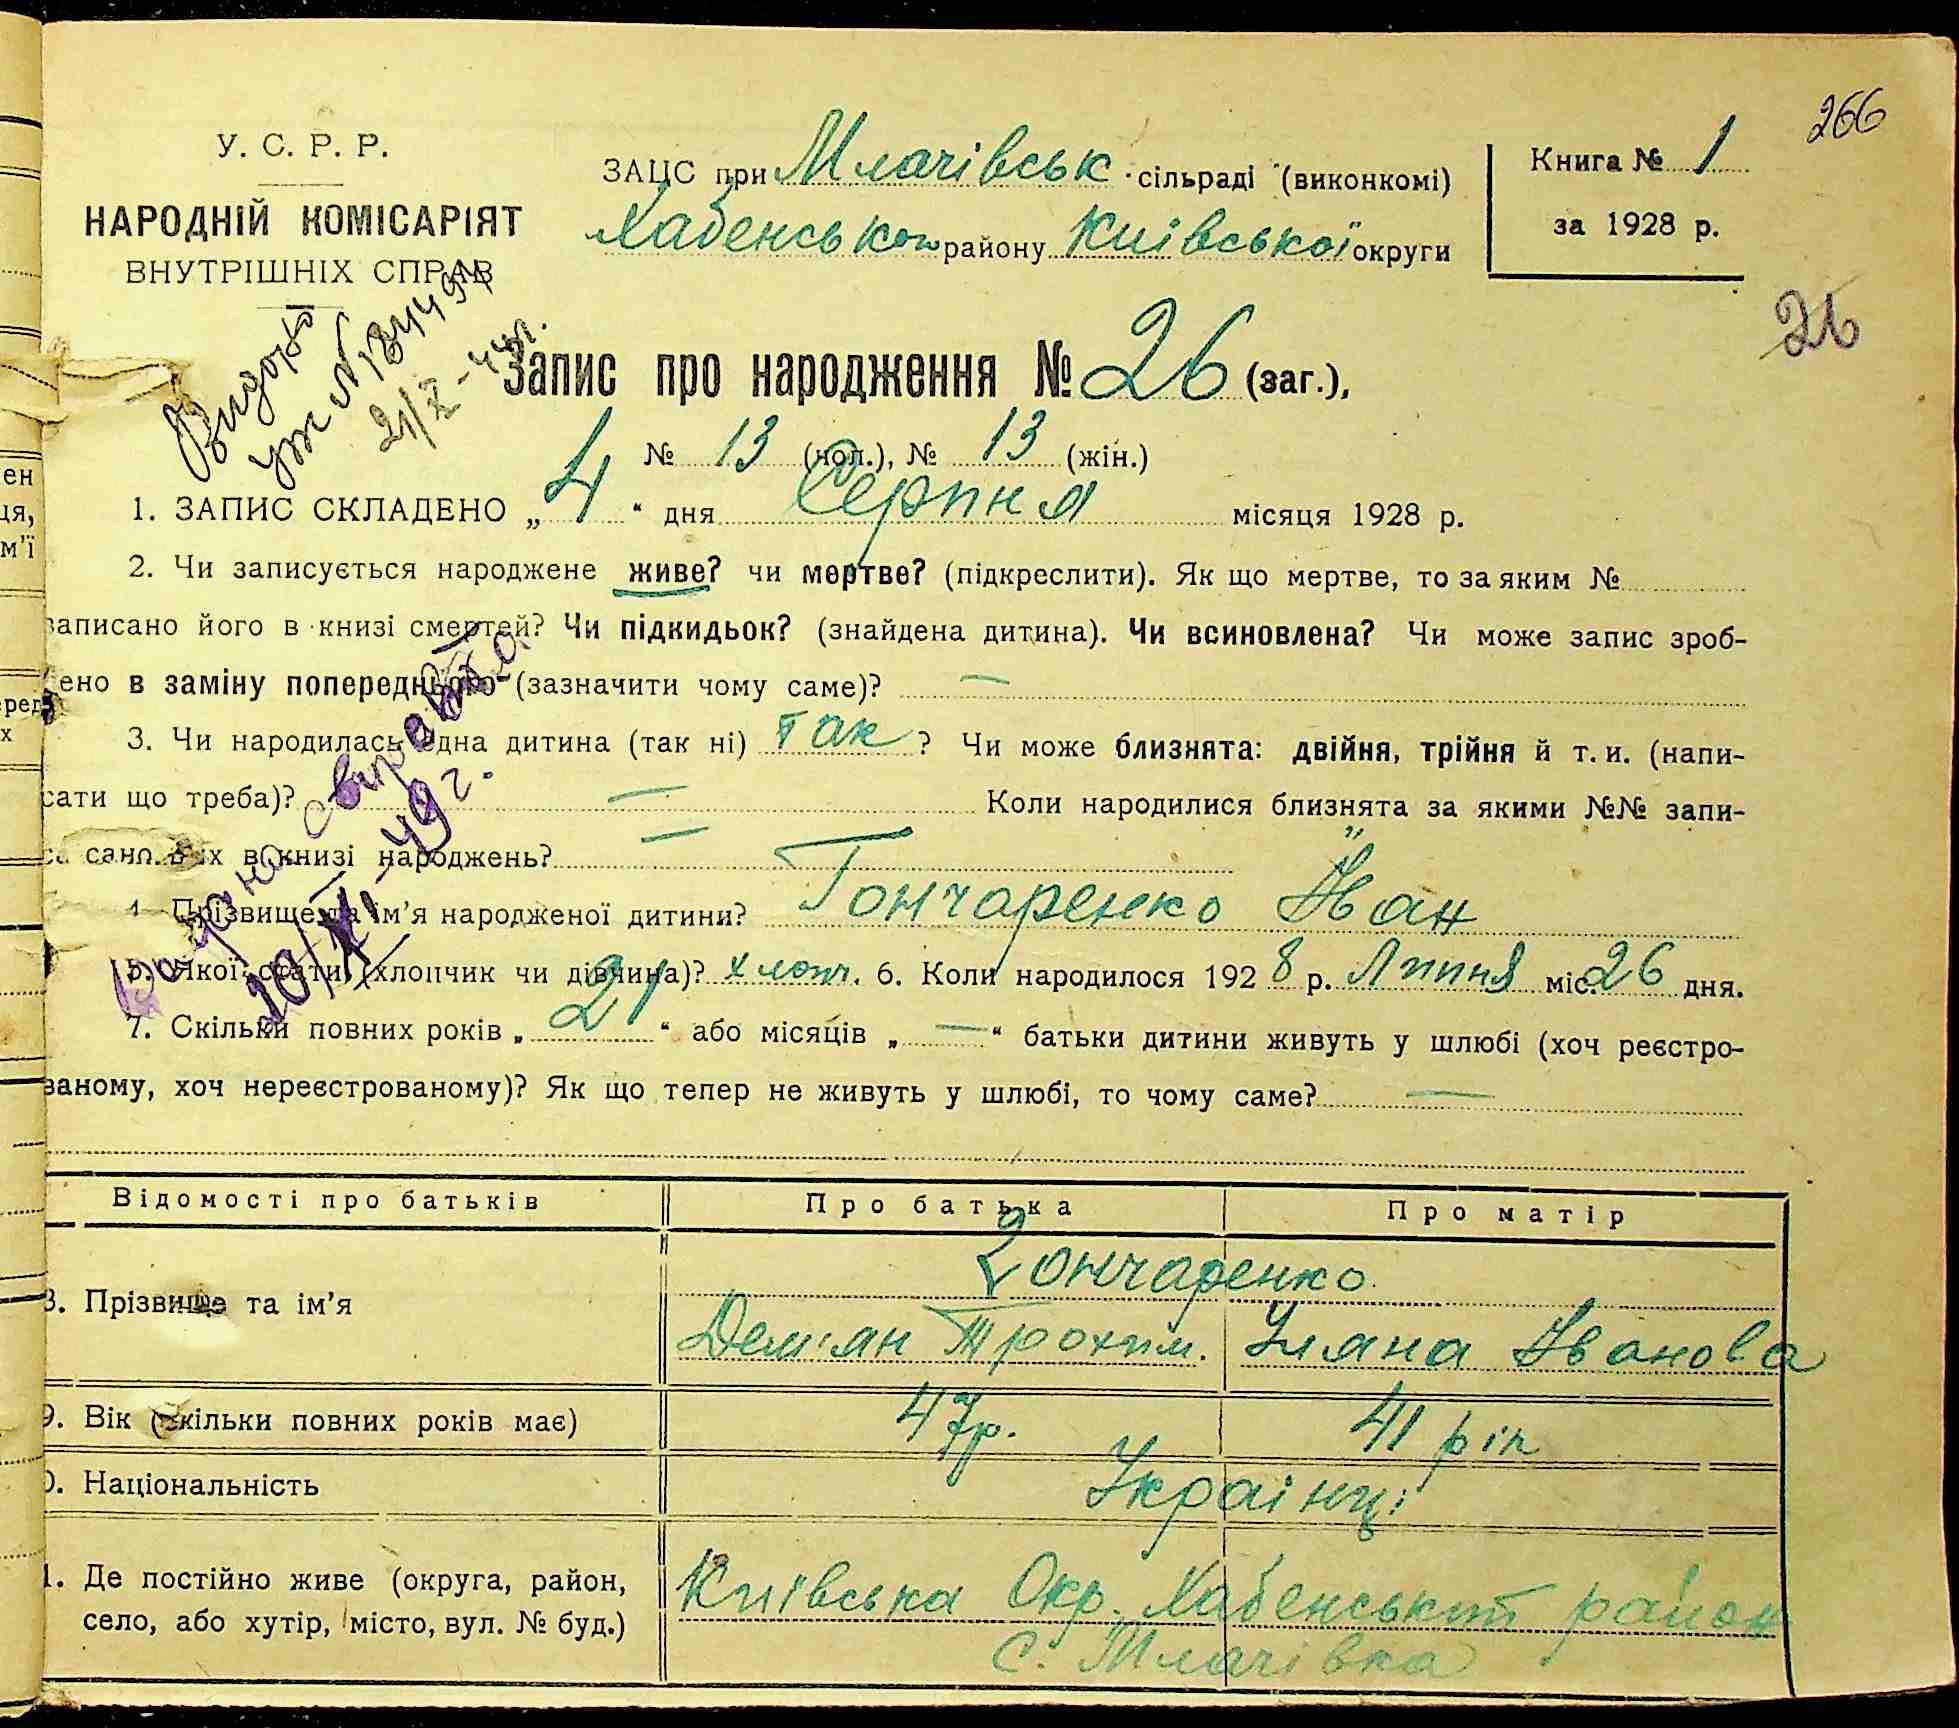 266
У. С. Р. Р.
НАРОДНІЙ КОМІСАРІЯТ
ВНУТРІШНІХ СПРАВ
ЗАЦС при Млачівськ сільраді (виконкомі)
Хабенського району Київської округи
Книга № 1
за 1928 р.
26
Запис про народження № 26 (заг.),
№ 13 (чол.), № 13 (жін.)
1. ЗАПИС СКЛАДЕНО „ 4 “ дня Серпня місяця 1928 р.
2. Чи записується народжене живе? чи мертве? (підкреслити). Як що мертве, то за яким №
записано його в книзі смертей? Чи підкидьок? (знайдена дитина). Чи всиновлена? Чи може запис зроб-
ено в заміну попереднього (зазначити чому саме)? —
3. Чи народилась одна дитина (так ні) так ? Чи може близнята: двійня, трійня й т. и. (напи-
сати що треба)? — Коли народилися близнята за якими №№ запи-
сано їх в книзі народжень? —
4. Прізвище та ім’я народженої дитини? Гончаренко Іван
5. Якої стати (хлопчик чи дівчина)? хлопч. 6. Коли народилося 1928 р. Липня міс. 26 дня.
7. Скільки повних років „ 21 “ або місяців „ — “ батьки дитини живуть у шлюбі (хоч реєстро-
ваному, хоч нереєстрованому)? Як що тепер не живуть у шлюбі, то чому саме? —
Відомості про батьків Про батька Про матір
Гончаренко
8. Прізвище та ім’я
Дем'ян Трохим. Уляна Іванова
9. Вік (скільки повних років має) 47р. 41 рік
0. Національність Українці
1. Де постійно живе (округа, район, Київська Окр. Хабенський район
село, або хутір, місто, вул. № буд.) с. Млачівка